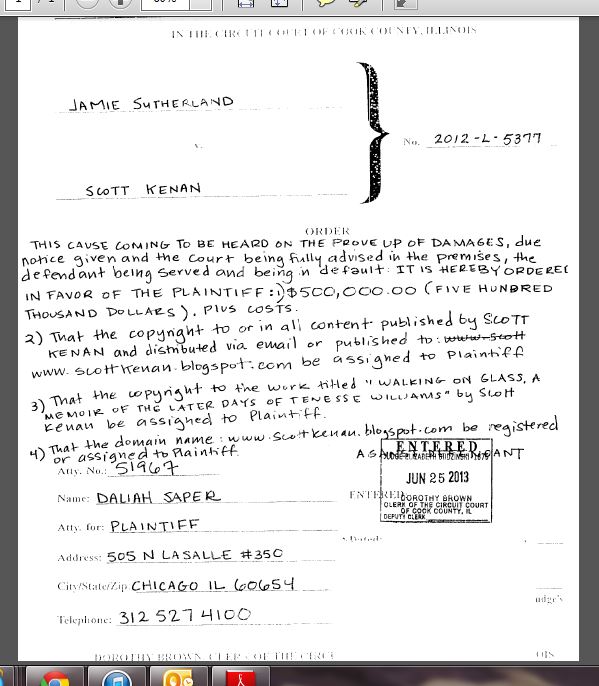 IN THE CIRCUIT COURT OF COOK COUNTY, ILLINOIS
JAMIE SUTHERLAND
v.
No. 2012-L-5377
SCOTT KENAN
ORDER
THIS CAUSE COMING TO BE HEARD ON THE PROVE UP OF DAMAGES, due
notice given and the court being fully advised in the premises, the
defendant being served and being in default: IT IS HEREBY ORDERED
IN FAVOR OF THE PLAINTIFF: 1) $500,000.00 (FIVE HUNDRED
THOUSAND DOLLARS), PLUS COSTS.
2) That the copyright to or in all content published by SCOTT
KENAN and distributed via email or published to: www.scott
www.scottkenan.blogspot.com be assigned to Plaintiff
3) That the copyright to the work titled "WALKING ON GLASS, A
MEMOIR OF THE LATER DAYS OF TENESSE WILLIAMS" by Scott
Kenan be assigned to Plaintiff.
4) That the domain name: www.scottkenan.blogspot.com be registered
or assigned to Plaintiff
Atty. No.: 51967
ENTERED
JUN 25 2013
DOROTHY BROWN
CLERK OF THE CIRCUIT COURT
OF COOK COUNTY, IL
DEPUTY CLERK
Name: DALIAH SAPER
ENTERED
Atty. for: PLAINTIFF
Address: 505 N LASALLE #350
City/State/Zip CHICAGO IL 60654
Telephone: 312 527 4100
DOROTHY BROWN, CLERK OF THE CIRC